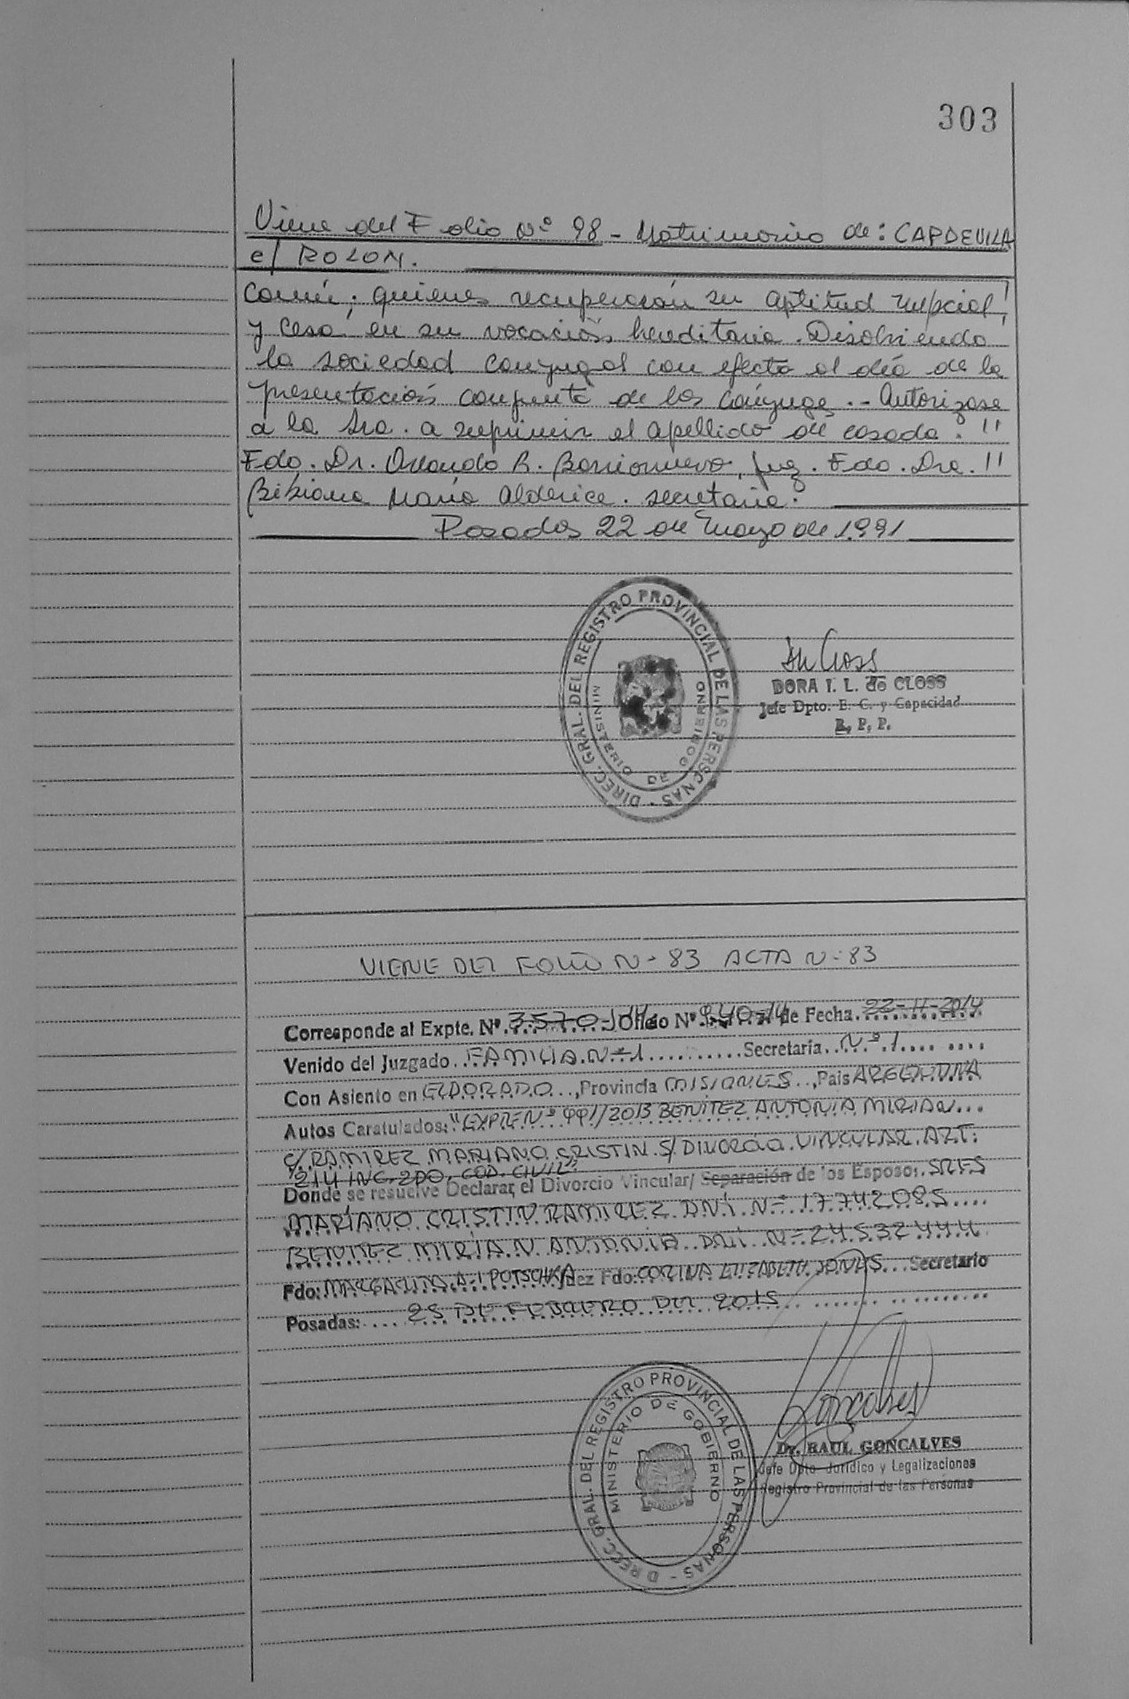 303
Viene del Folio Nº 98 - Matrimonio de: CAPDEVILA
c/ ROLON.
Común; quienes recuperarán su aptitud nupcial
y cesa, en su vocación hereditaria. Disolviendo
la sociedad conyugal con efecto al día de la
presentación conjunta de los cónyuge .- Autorizase
a la Sra. a suprimir el apellido de casada. "
Fdo. Dr. Orlando R. Barrionuevo, Juez. Fdo. Dra. "
Bibiana María Alderice. secretaria.
Posadas 22 de Mayo de 1991
DIREC. GRAL. DEL REGISTRO PROVINCIAL DE LAS PERSONAS
MINISTERIO DE GOBIERNO
DORA I. L. de CLOSS
Jefe Dpto. E. C. y Capacidad
R. P. P.
VIENE DEL FOLIO N- 83 ACTA N- 83
Corresponde al Expte. Nº 3570-14 Oficio Nº 940-14 de Fecha 22-11-2014
Venido del Juzgado FAMILIA N-1 Secretaría Nº 1
Con Asiento en ELDORADO, Provincia MISIONES, País ARGENTINA
Autos Caratulados: "EXPTE Nº 441/2013 BENITEZ ANTONIA MIRIAN
C/ RAMIREZ MARIANO CRISTIN S/ DIVORCIO VINCULAR ART.
214 INC. 2DO. COD. CIVIL"
Donde se resuelve Declarar el Divorcio Vincular/ Separación de los Esposos, SRES
MARIANO CRISTIN RAMIREZ DNI N- 17.742.085
BENITEZ MIRIAN ANTONIA DNI N- 24.532.444
Fdo: MARGARITA A. POTSCHKA Juez Fdo: CORINA ELIZABETH JONES Secretario
Posadas: 25 DE FEBRERO DEL 2015
DIREC. GRAL. DEL REGISTRO PROVINCIAL DE LAS PERSONAS
MINISTERIO DE GOBIERNO
Goncalves
Dr. RAUL GONCALVES
Jefe Dpto. Jurídico y Legalizaciones
Registro Provincial de las Personas